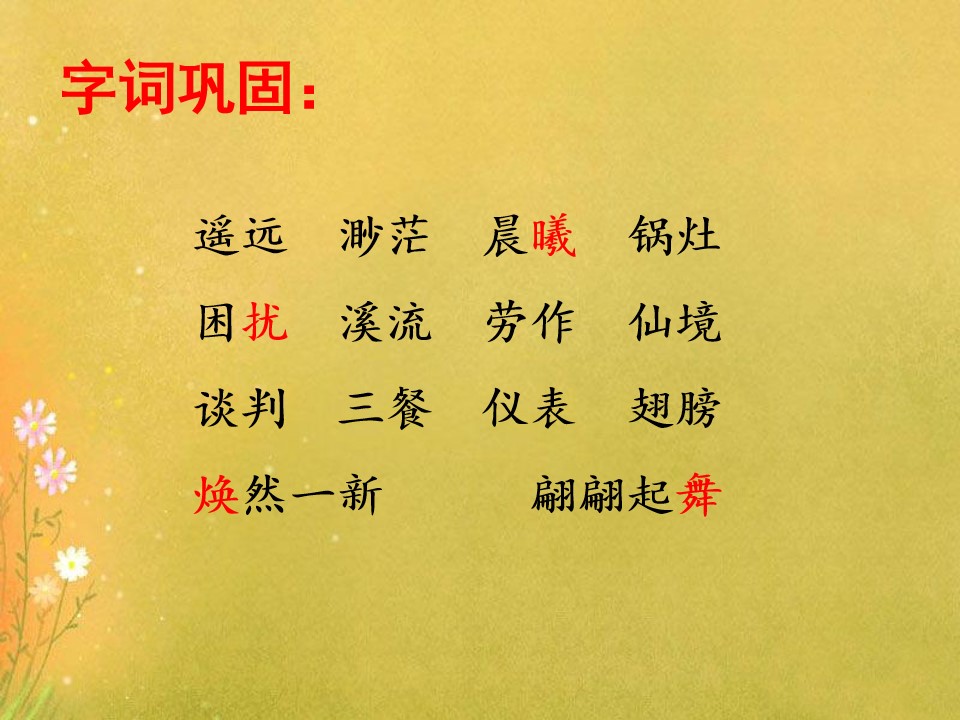 字词巩固：
遥远 渺茫 晨曦 锅灶
困扰 溪流 劳作 仙境
谈判 三餐 仪表 翅膀
焕然一新 翩翩起舞